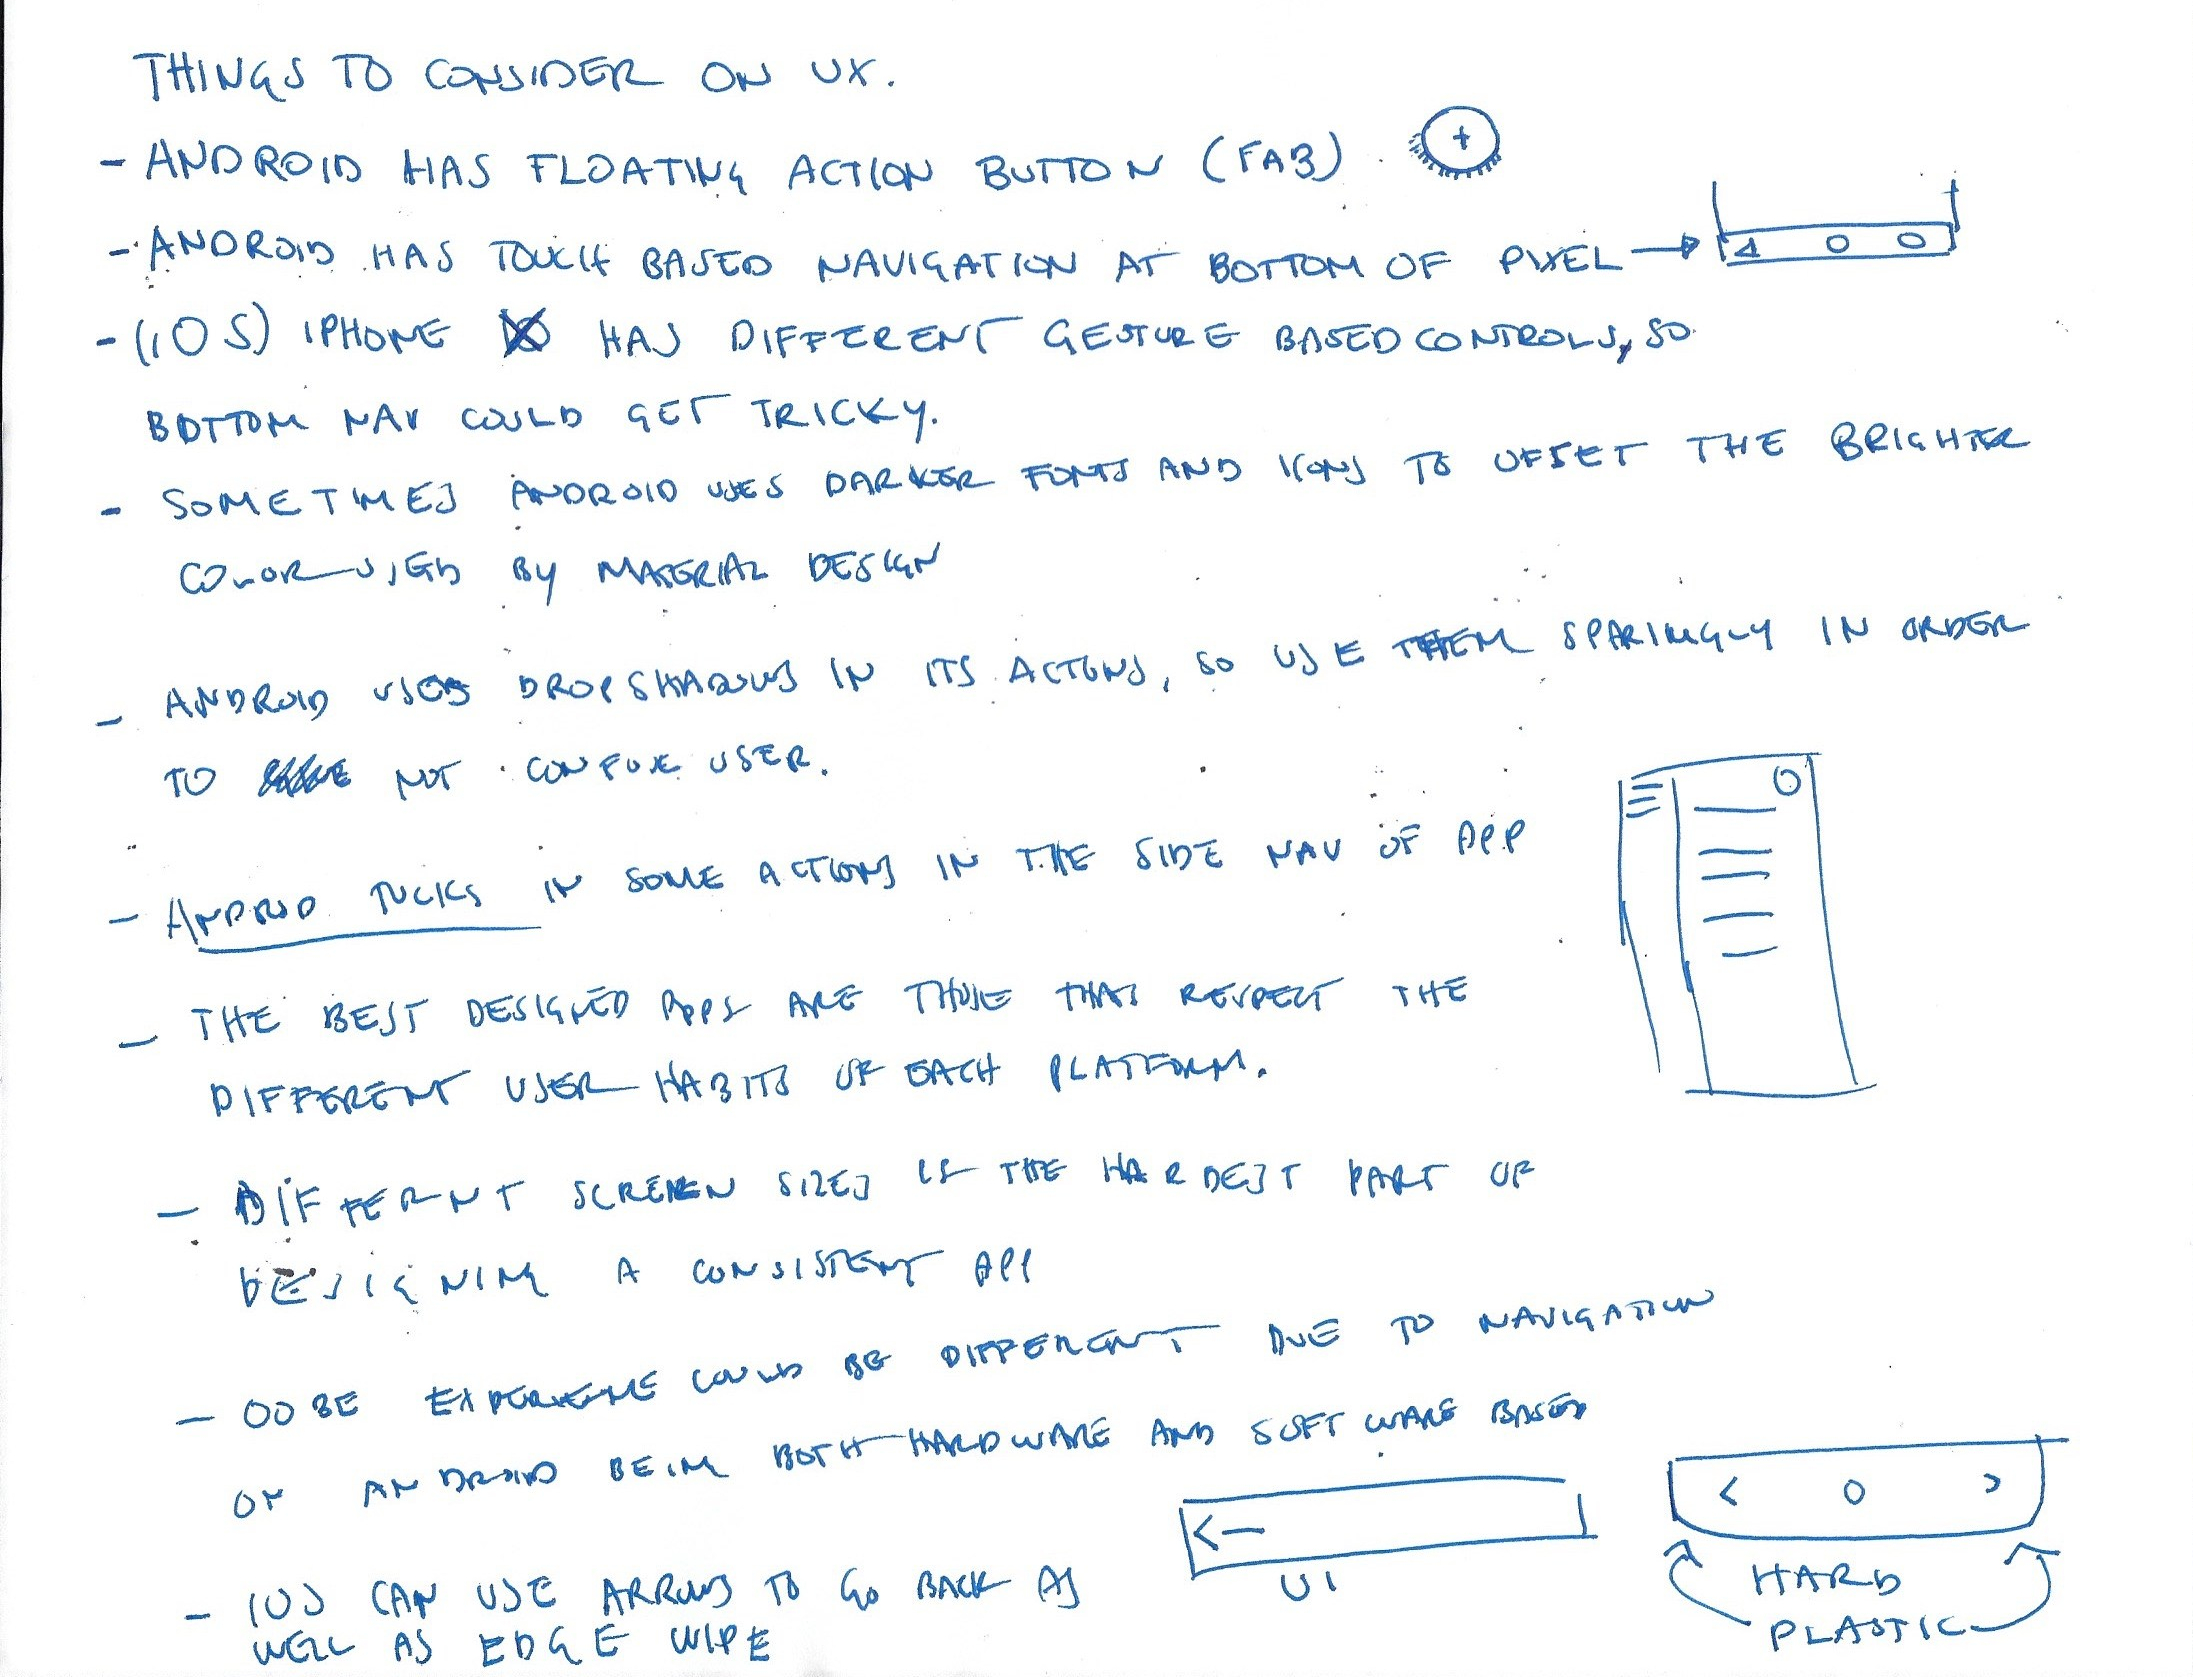 THINGS TO CONSIDER ON UX.
- ANDROID HAS FLOATING ACTION BUTTON (FAB) +
- ANDROID HAS TOUCH BASED NAVIGATION AT BOTTOM OF PIXEL →
- (IOS) IPHONE HAS DIFFERENT GESTURE BASED CONTROLS, SO
BOTTOM NAV COULD GET TRICKY.
- SOMETIMES ANDROID USES DARKER FONTS AND ICONS TO OFSET THE BRIGHTER
COLOR USED BY MATERIAL DESIGN
- ANDROID USES DROPSHADOWS IN ITS ACTIONS, SO USE THEM SPARINGLY IN ORDER
TO NOT CONFUSE USER.
- ANDROID TUCKS IN SOME ACTIONS IN THE SIDE NAV OF APP
- THE BEST DESIGNED APPS ARE THOSE THAT RESPECT THE
DIFFERENT USER HABITS OF EACH PLATFORM.
- DIFFERNT SCREEN SIZES IS THE HARDEST PART OF
DESIGNING A CONSISTENT APP
- OOBE EXPERIENCE COULD BE DIFFERENT DUE TO NAVIGATION
ON ANDROID BEING BOTH HARDWARE AND SOFTWARE BASED
- IOS CAN USE ARROWS TO GO BACK AS
WELL AS EDGE WIPE
UI
HARD
PLASTIC